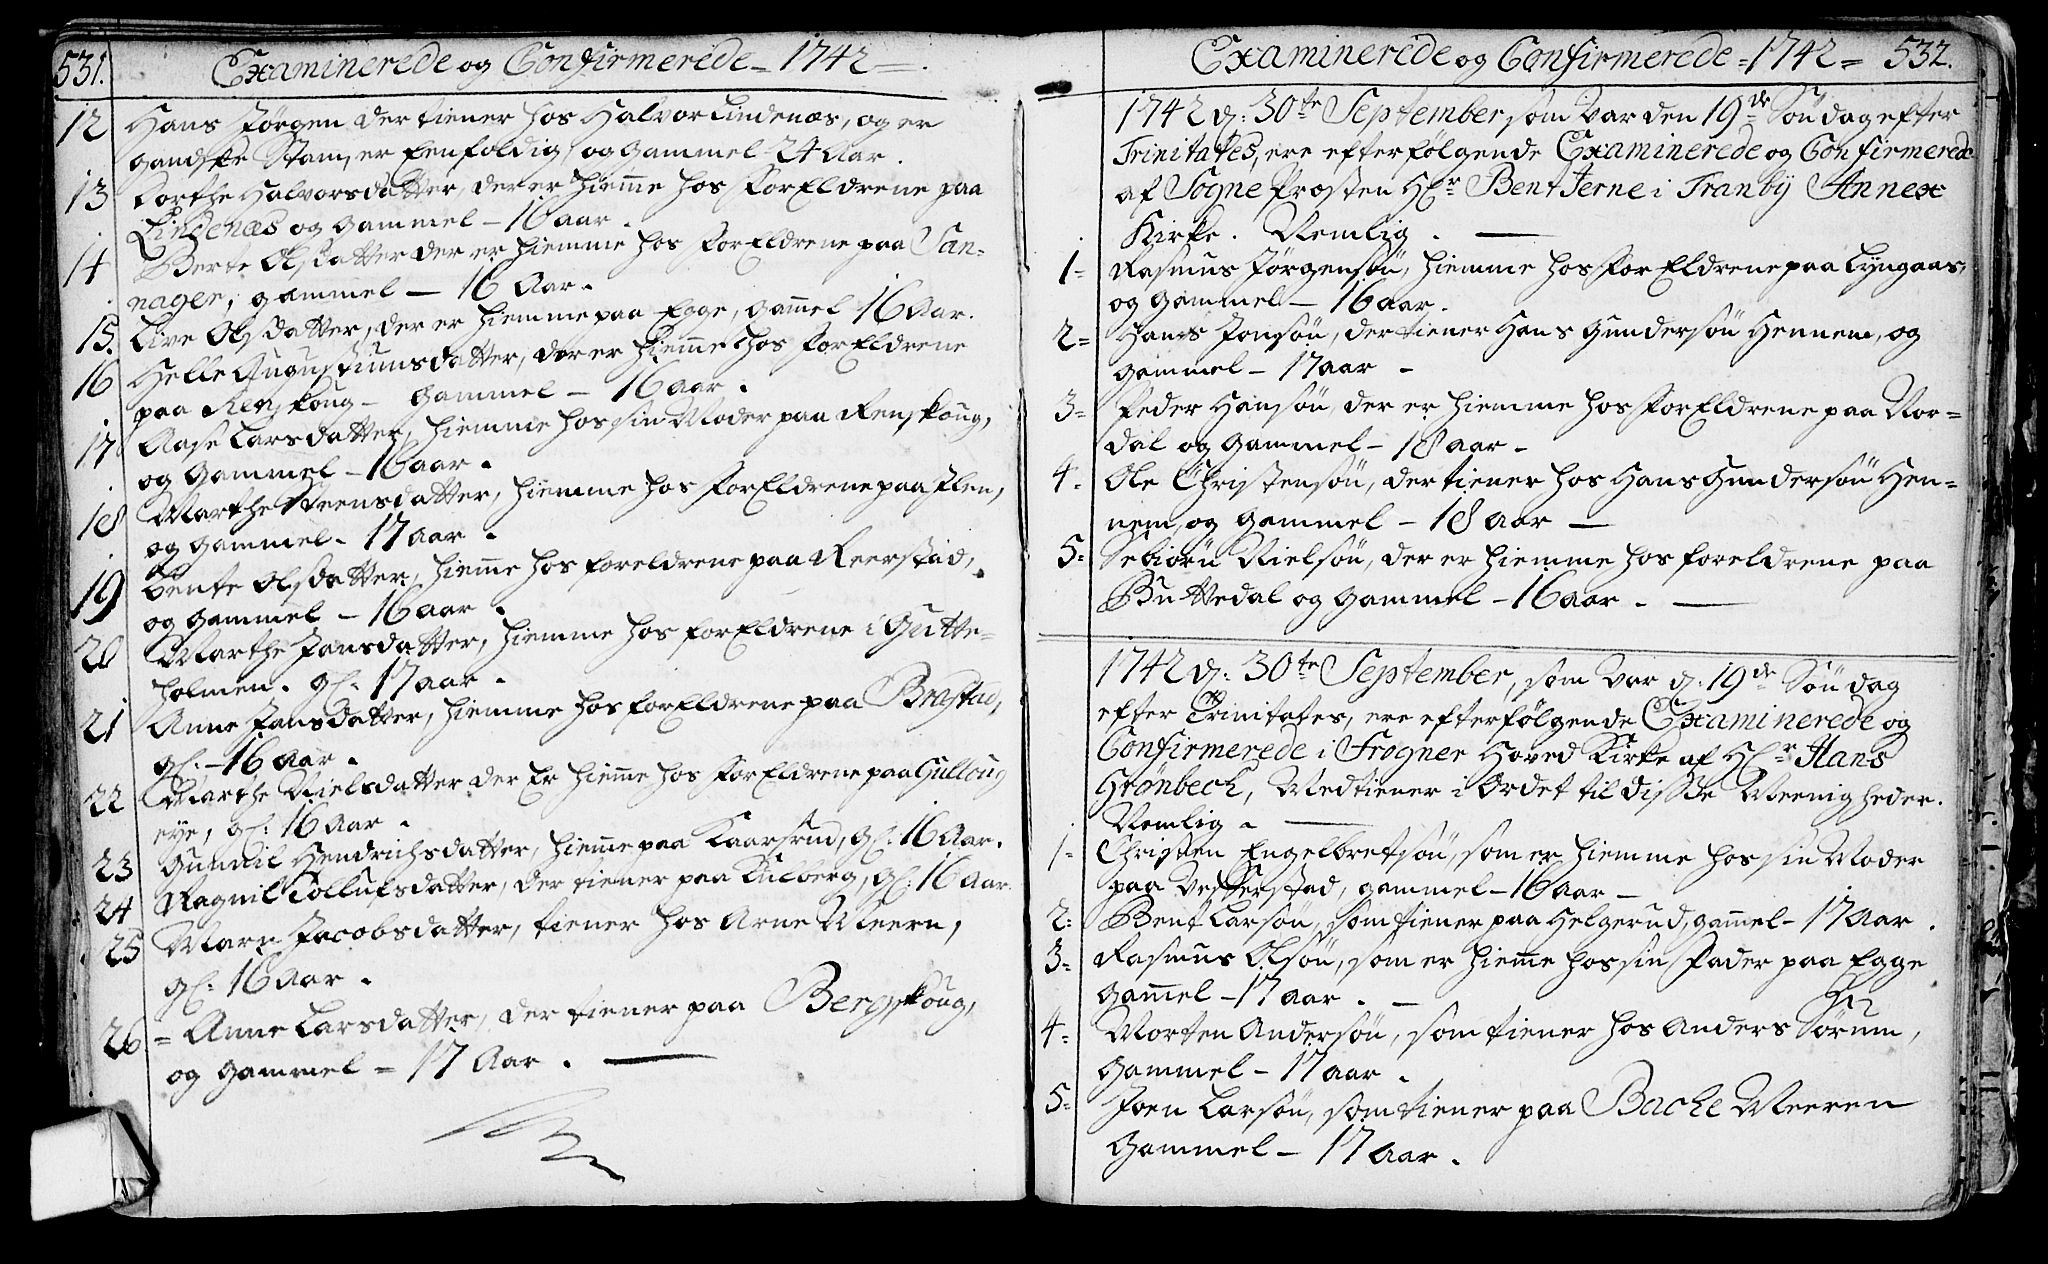 531. Examinerede og Confirmerede = 1742 =
12 Hans Jørgen der tiener hos Halvor Lindenæs, og er
gandske Stam, er Eenfoldig og gammel 24 Aar.
13 Dorthe Halvorsdatter, der er hiemme hos ForEldrene paa
Lindenæs og gammel – 16 aar.
14 Berte Olsdatter der er hiemme hos ForEldrene paa San-
nager, gammel – 16 Aar.
15. Live Olsdatter, der er hiemme paa Egge, gammel 16 Aar.
16 Helle Augustinusdatter, der er hiemme hos ForEldrene
paa Renskoug – gammel – 16 aar.
17 Aase Larsdatter, hiemme hos sin Moder paa Renskoug,
og gammel – 16 aar.
18 Marthe Steensdatter, hiemme hos ForEldrene paa Flen,
og gammel – 17 aar.
19 Bente Olsdatter, hiemme hos foreldrene paa Reerstad,
og gammel – 16 aar.
20 Marthe Jansdatter, hiemme hos forEldrene i Gutte-
holmen. gl: 17 aar.
21 Anne Jansdatter, hiemme hos forEldrene paa Brastad,
gl: – 16 Aar.
22 Marthe Nielsdatter der Er hiemme hos ForEldrene paa Gulloug
eye, gl: 16 Aar.
23 Gunnil Hendrichsdatter, hiemme paa Kaarsrud, gl: 16 Aar.
24 Ragnil Tollufsdatter, der tiener paa Kulberg, gl: 16 aar.
25 Marn Jacobsdatter, tiener hos Arne Meern,
gl: 16 Aar.
26 = Anne Larsdatter, der tiener paa Bergskoug,
og gammel = 17 Aar.
Examinerede og Confirmerede = 1742 = 532.
1742 d: 30te September, som Var den 19de Søndag efter
Trinitates, ere efterfølgende Examinerede og Confirmerede
af Sogne Præsten Hr Bent Jerne i Tranby Annex
Kirke. Nemlig.
1= Rasmus Jørgensøn, hiemme hos ForEldrene paa Lyngaas,
og gammel – 16 aar.
2= Hans Jonsøn, der tiener Hans Gundersøn Hennem, og
gammel – 17 aar –
3= Peder Hansøn, der er hiemme hos ForEldrene paa Nor=
dal og gammel – 18 aar –
4. Ole Christensøn, der tiener hos Hans Gundersøn Hen=
nem, og gammel – 18 aar —
5= Sebiørn Nielsøn, der er hiemme hos foreldrene paa
Buttedal og gammel – 16 aar.
1742 d: 30te September, som Var d: 19de Søndag
efter Trinitates, ere efterfølgende Examinerede og
Confirmerede i Frogner Hoved Kirke af Hr Hans
Grønbech, Medtiener i Ordet til disse Meenigheder.
Nemlig.
1= Christen Engelbretsøn, som er hiemme hos sin Moder
paa Vefferstad, gammel – 16 aar –
2: Bent Larsøn, som tiener paa Helgerud, gammel – 17 Aar.
3= Rasmus Olsøn, som er hiemme hos sin Fader paa Egge
gammel – 17 aar. –
4= Morten Andersøn, som tiener hos Anders Sørum,
gammel – 17 aar.
5= Joen Larsøn, som tiener paa Bache Meeren
gammel – 17 aar.